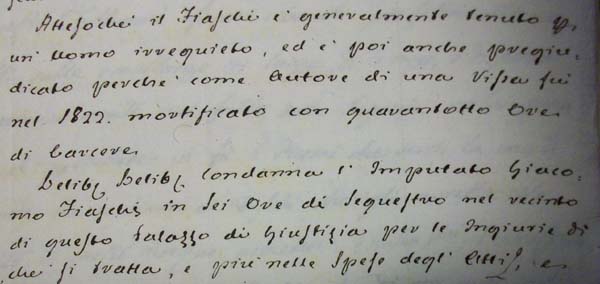 Attesochè il Fiaschi è generalmente tenuto p.
un' uomo irrequieto, ed è poi anche pregiu-
dicato perchè come Autore di una Rissa fu
nel 1822. mortificato con quarantotto Ore
di Carcere
Delib. Delib. Condanna l' Imputato Giaco-
mo Fiaschi in Sei Ore di Sequestro nel recinto
di questo Palazzo di Giustizia per le Ingiurie di
che si tratta, e più nelle Spese degli Atti, e